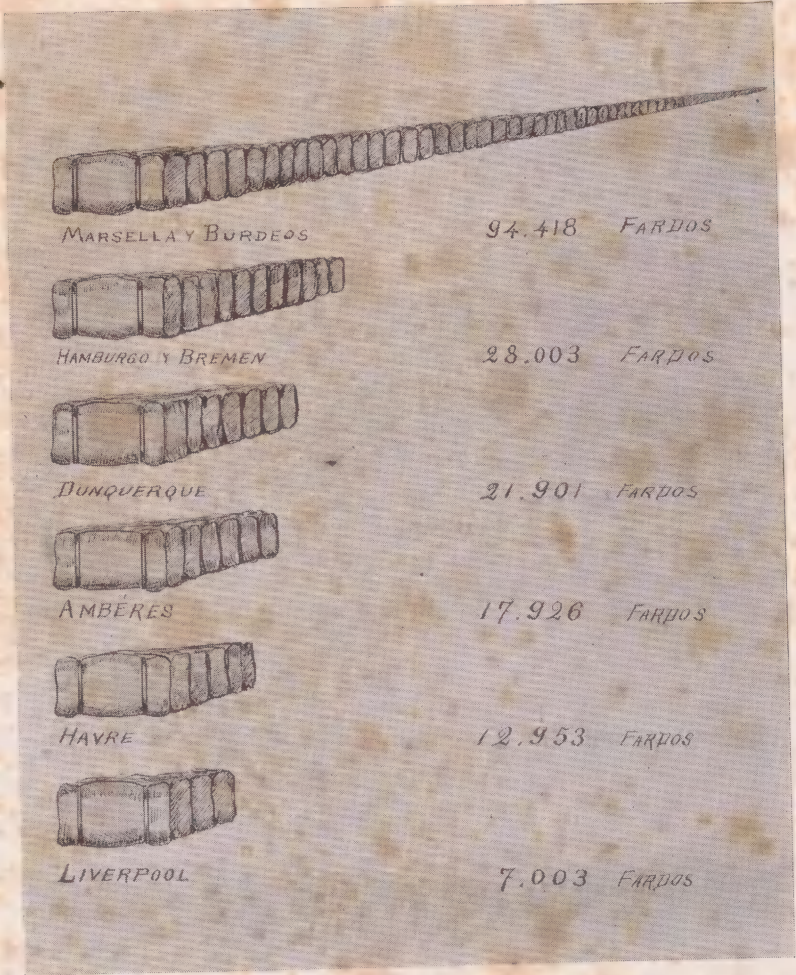 MARSELLA Y BURDEOS 94.418 FARDOS
HAMBURGO Y BREMEN 28.003 FARDOS
DUNQUERQUE 21.901 FARDOS
AMBÉRES 17.926 FARDOS
HAVRE 12.953 FARDOS
LIVERPOOL 7.003 FARDOS